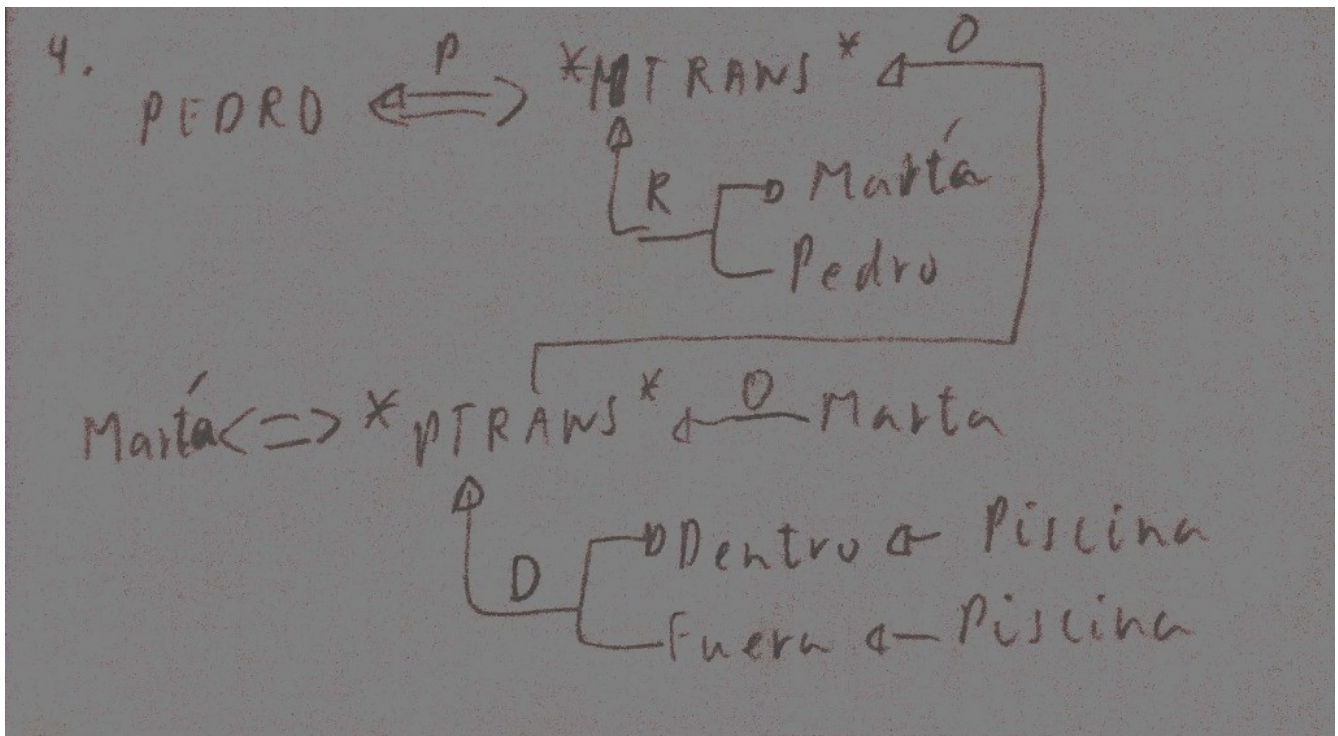 4.
P
O
PEDRO *MTRANS*
R
Martá
Pedro
Martá<=> *PTRANS* O Marta
D
Dentro Piscina
Fuera Piscina